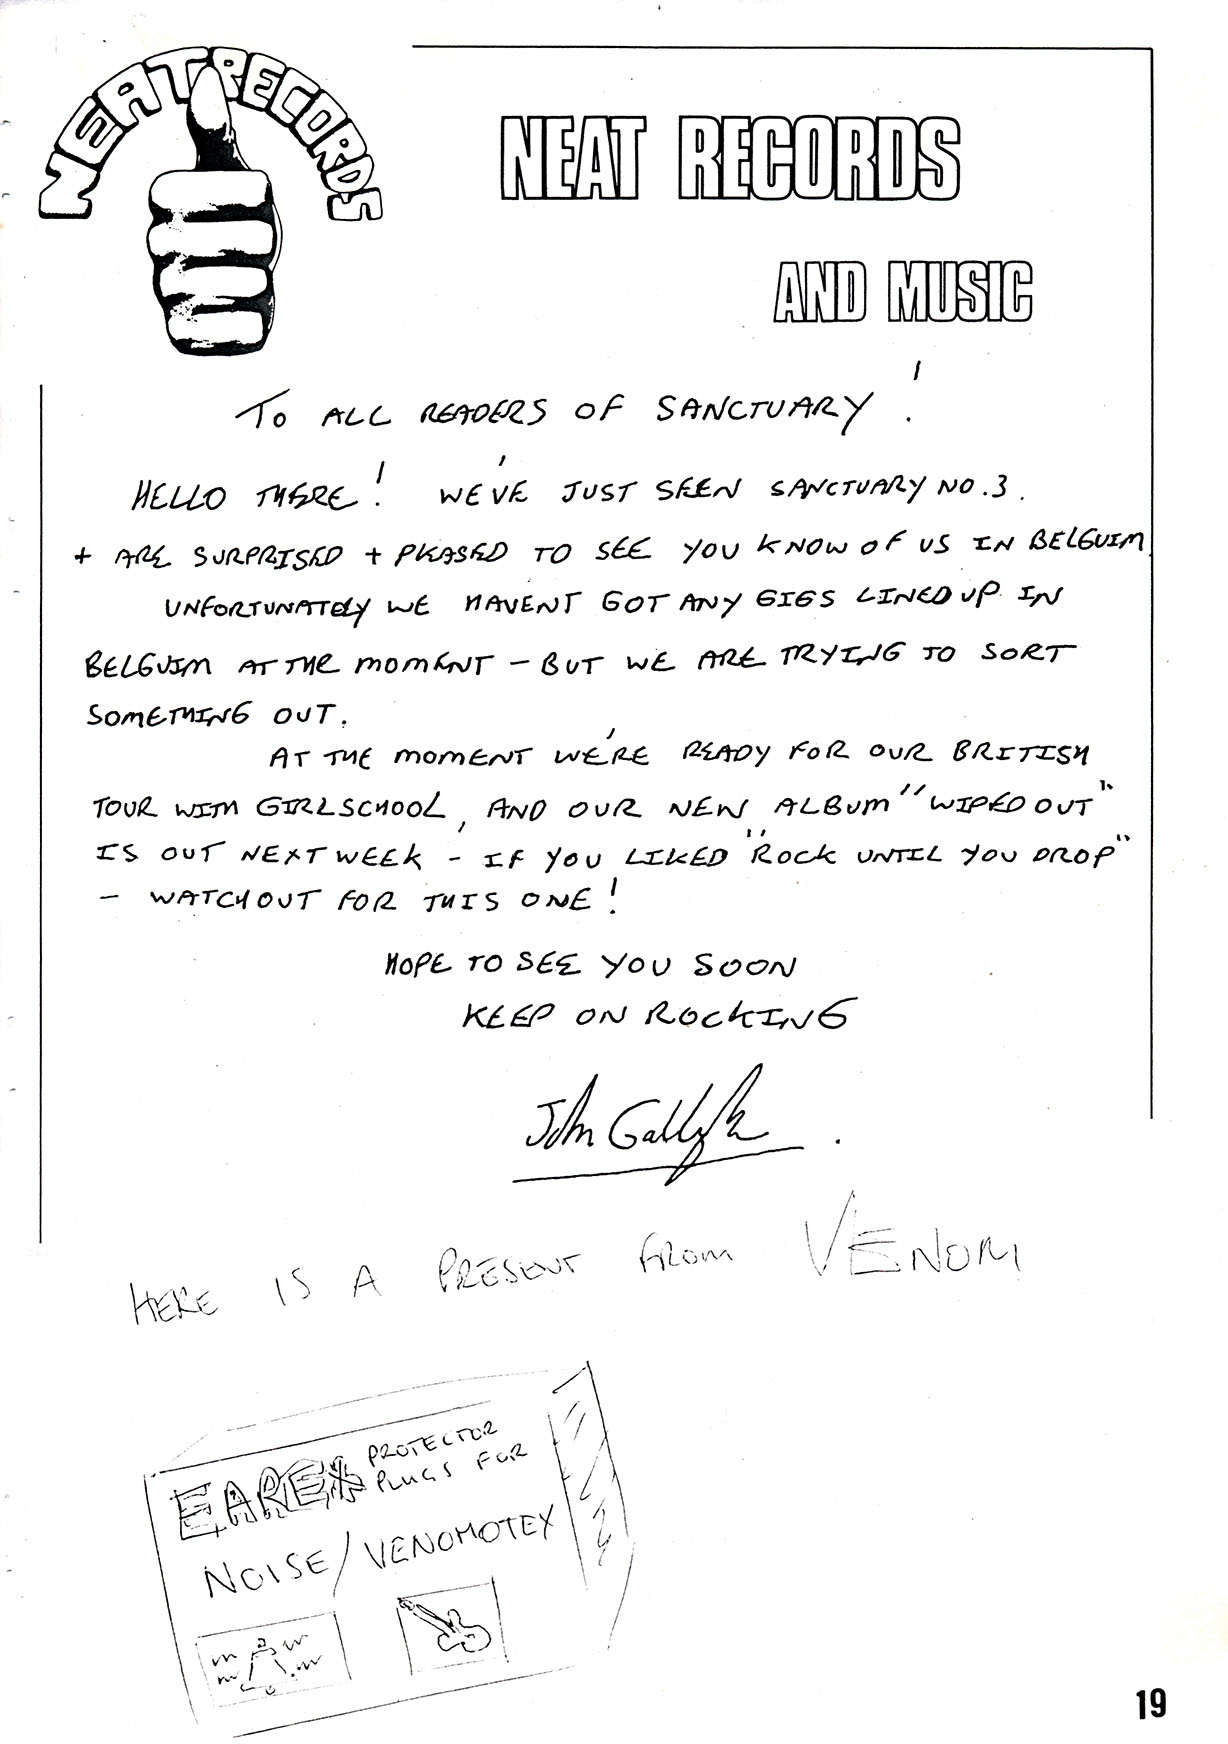 NEAT RECORDS
NEAT RECORDS
AND MUSIC
TO ALL READERS OF SANCTUARY!
HELLO THERE! WE'VE JUST SEEN SANCTUARY NO.3.
+ ARE SURPRISED + PKASED TO SEE YOU KNOW OF US IN BELGUIM
UNFORTUNATELY WE HAVENT GOT ANY GIGS LINED UP IN
BELGUIM AT THE MOMENT - BUT WE ARE TRYING TO SORT
SOMETHING OUT.
AT THE MOMENT WE'RE READY FOR OUR BRITISH
TOUR WITH GIRLSCHOOL, AND OUR NEW ALBUM "WIPED OUT"
IS OUT NEXT WEEK - IF YOU LIKED "ROCK UNTIL YOU DROP"
- WATCH OUT FOR THIS ONE!
HOPE TO SEE YOU SOON
KEEP ON ROCKING
John Gallagher.
HERE IS A PRESENT FROM VENOM
EAREX PROTECTOR
PLUGS FOR
NOISE/VENOMOTEX
19